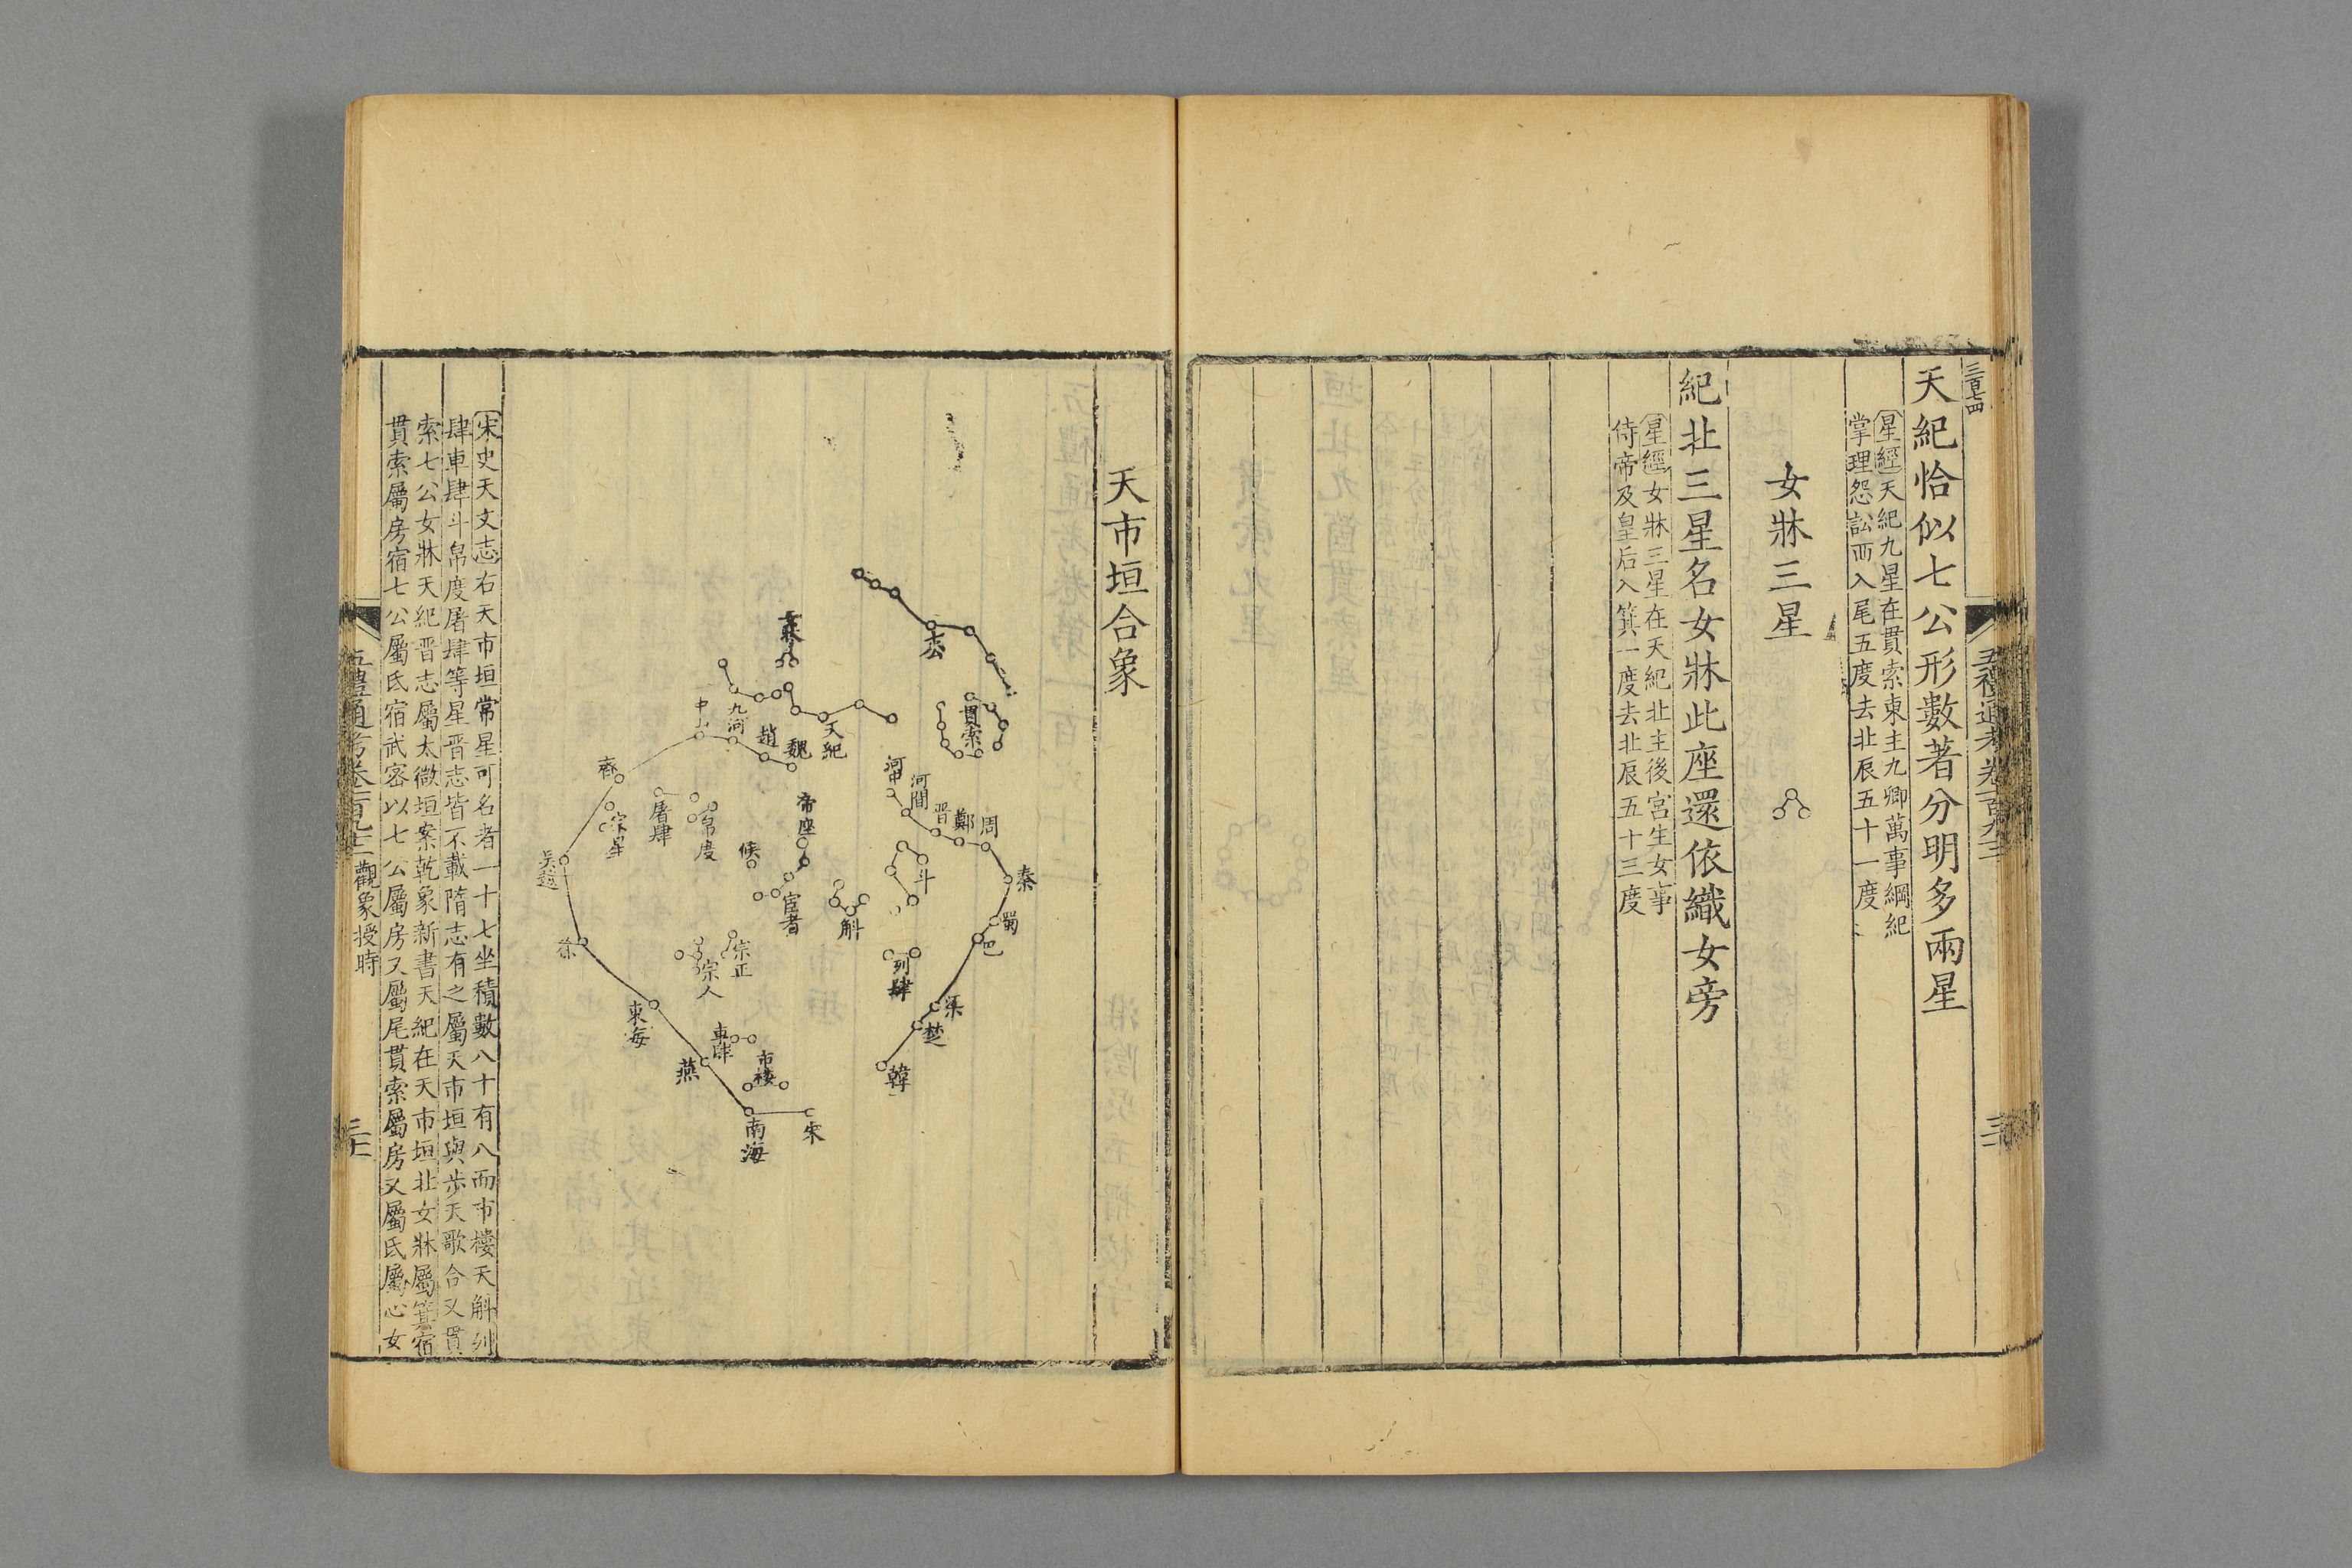 三百七四
五禮通考卷一百九十三
天紀恰似七公形數著分明多兩星
星經天紀九星在貫索東主九卿萬事綱紀
掌理怨訟而入尾五度去北辰五十一度
女牀三星
紀北三星名女牀此座還依織女旁
星經女牀三星在天紀北主後宮生女事
侍帝及皇后入箕一度去北辰五十三度
天市垣合象
七公
貫索
女牀
天紀
九河
中山
趙
魏
齊
河中
河間
晉
鄭
周
秦
蜀
巴
梁
楚
韓
屠肆
帛度
宗星
帝座
候
宦者
斗
斛
列肆
吳越
徐
東海
燕
南海
宋
宗正
宗人
車肆
市樓
宋史天文志右天市垣常星可名者一十七坐積數八十有八而市樓天斛列
肆車肆斗帛度屠肆等星晉志皆不載隋志有之屬天市垣與步天歌合又貫
索七公女牀天紀晉志屬太微垣案乾象新書天紀在天市垣北女牀屬箕宿
貫索屬房宿七公屬氐宿武密以七公屬房又屬尾貫索屬房又屬氐屬心女
五禮通考卷一百九十三 觀象授時